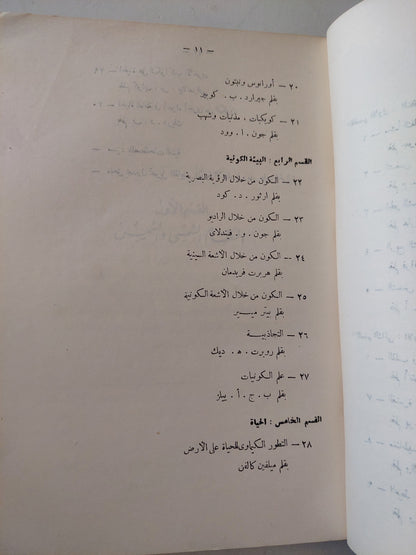 — ١١ —
٢٠ — أورانوس ونبتون
بقلم جيرارد . ب . كويبر
٢١ — كويكبات ، مذنبات وشهب
بقلم جون . أ . وود
القسم الرابع : البيئة الكونية
٢٢ — الكون من خلال الرؤية البصرية
بقلم ارثور . د . كود
٢٣ — الكون من خلال الراديو
بقلم جون . و . فيندلاى
٢٤ — الكون من خلال الاشعة السينية
بقلم هربرت فريدمان
٢٥ — الكون من خلال الاشعة الكونية
بقلم بيتر ميير
٢٦ — التجاذبية
بقلم روبرت . ه . ديك
٢٧ — علم الكونيات
بقلم ب . ج . أ . بيبلز
القسم الخامس : الحياة
٢٨ — التطور الكيماوى للحياة على الارض
بقلم ميلفين كالفن